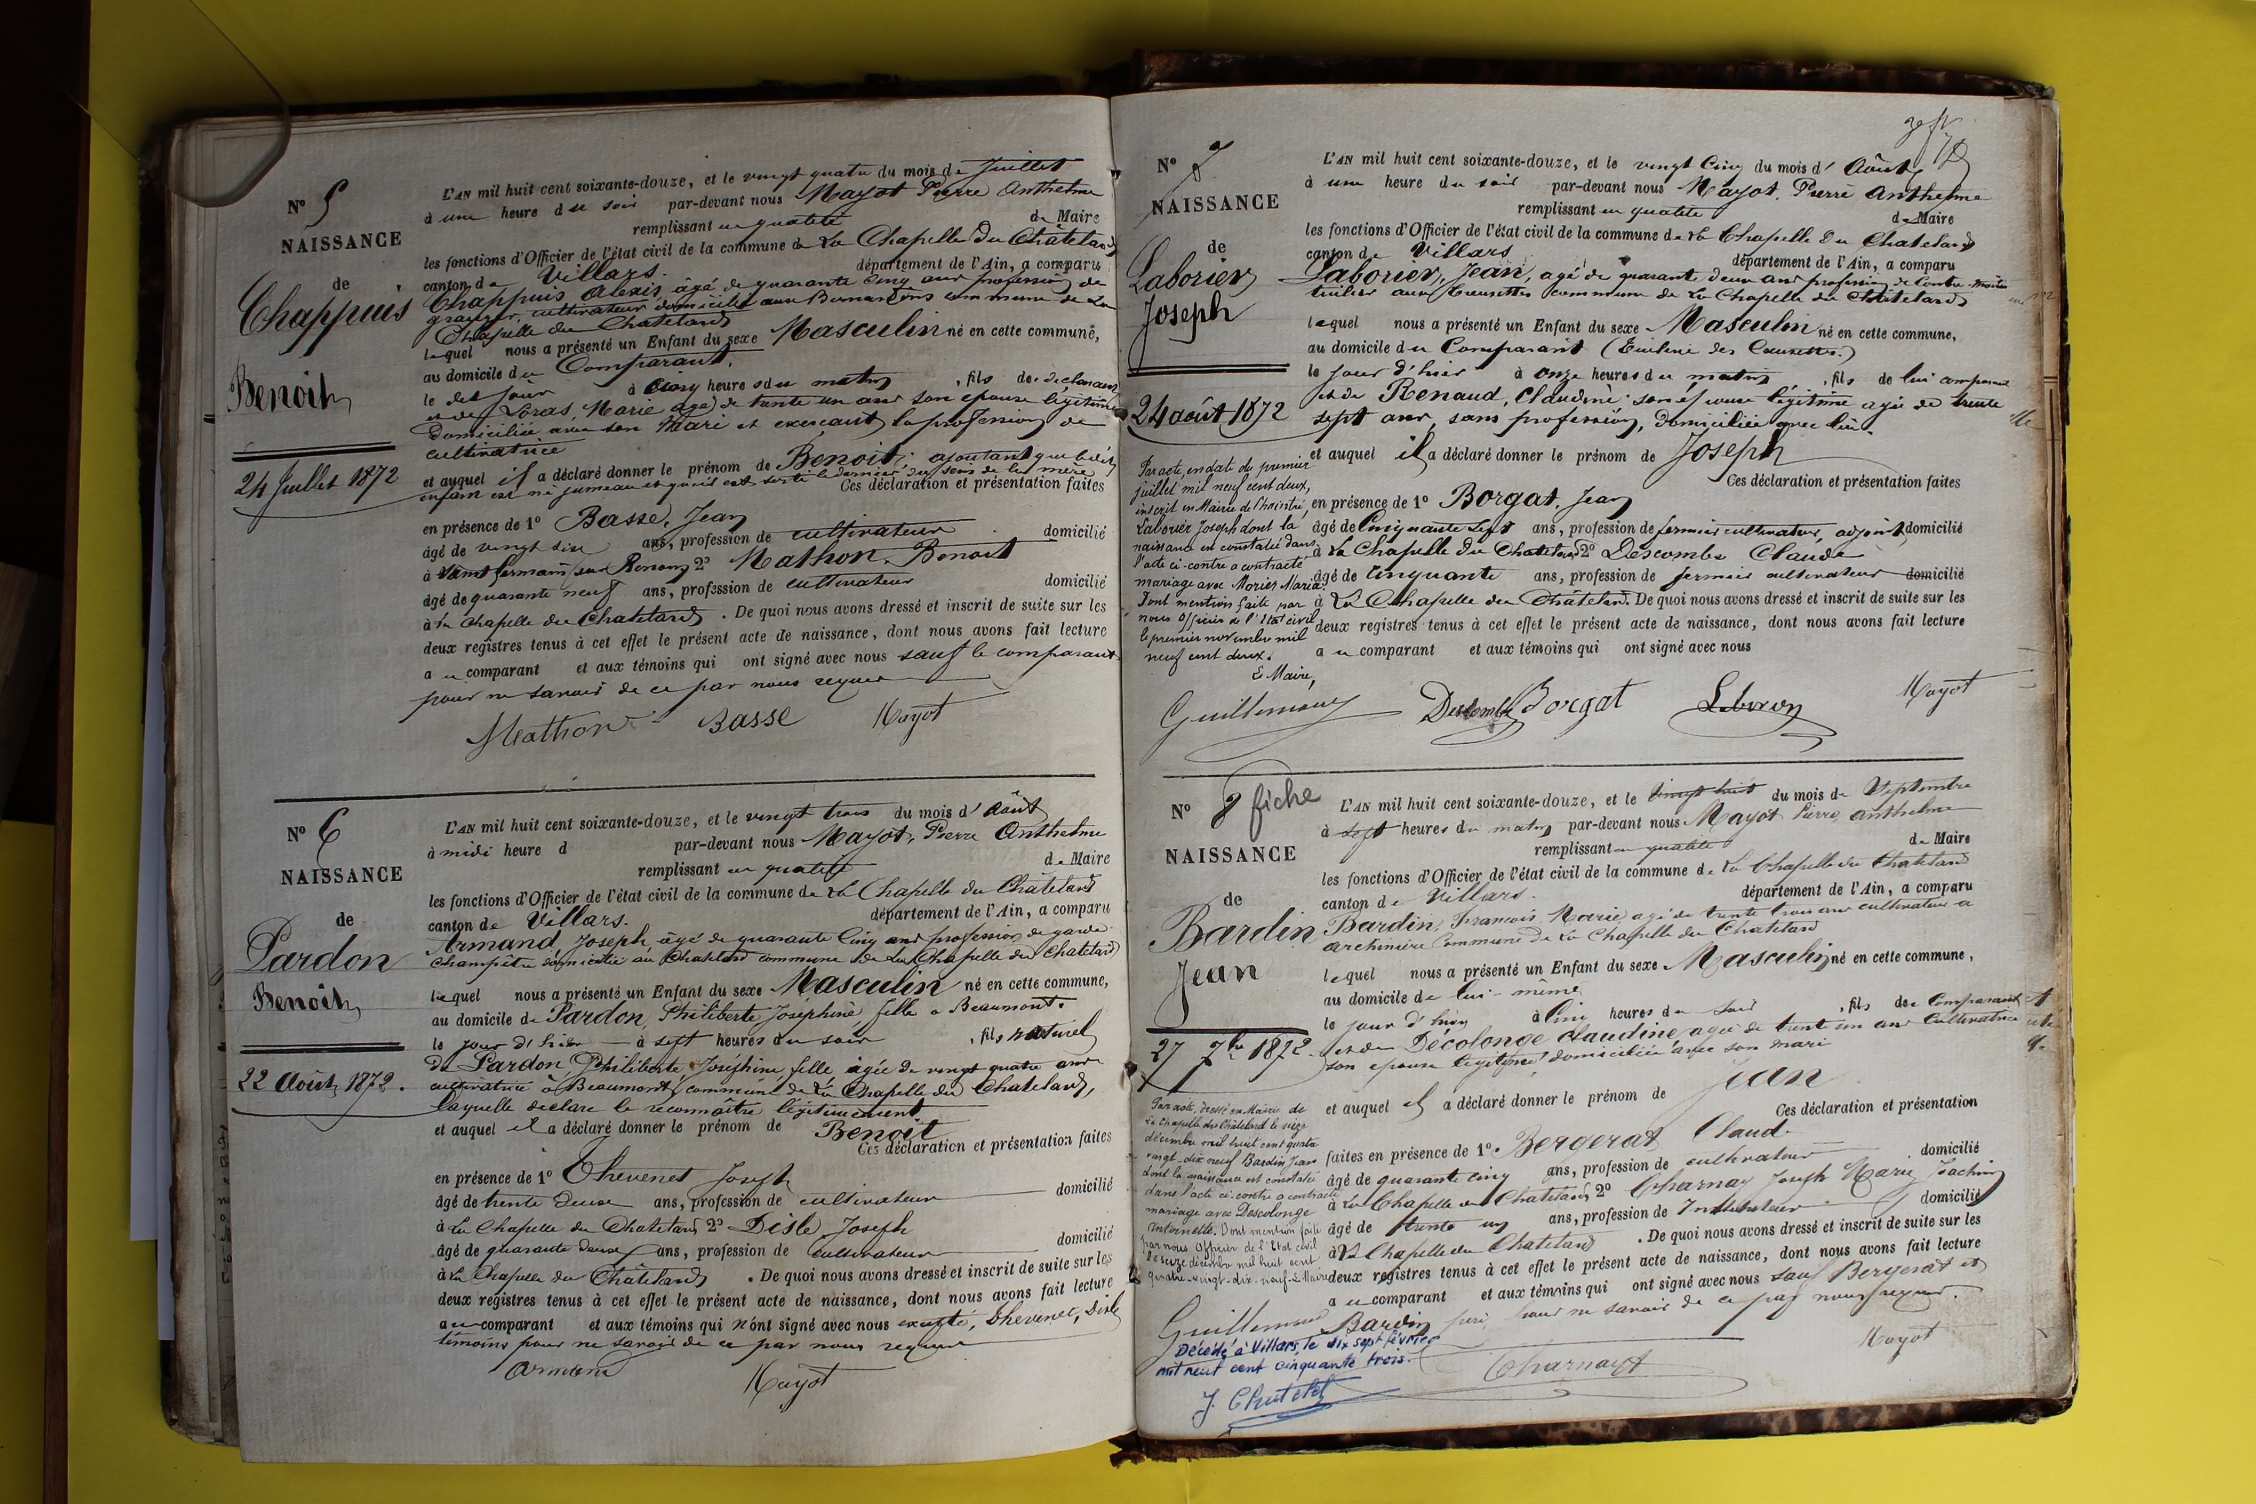 N° 5
NAISSANCE
de
Chappuis
Benoit
24 Juillet 1872
L'AN mil huit cent soixante-douze, et le vingt quatre du mois de Juillet
à une heure du soir par-devant nous Mayot Pierre Anthelme
remplissant en qualité de Maire
les fonctions d'Officier de l'état civil de la commune de La Chapelle du Châtelard
canton de Villars. département de l'Ain, a comparu
Chappuis Alexis âgé de quarante cinq ans profession de
granger, cultivateur domicilié aux Bernardins commune de La
Chapelle du Chatelard
lequel nous a présenté un Enfant du sexe Masculin né en cette commune,
au domicile du Comparant.
le dit jour à cinq heures du matin, fils de déclarant
et de Loras, Marie agée de trente un ans son épouse légitime
domiciliée avec son mari et exerçant la profession de
cultivatrice
et auquel il a déclaré donner le prénom de Benoit; ajoutant que ledit
enfant est né jumeau et qu'il est sorti le dernier du sein de la mère
Ces déclaration et présentation faites
en présence de 1° Basse, Jean
âgé de vingt six ans, profession de cultivateur domicilié
à Saint Germain sur Renon 2° Mathon, Benoit
âgé de quarante neuf ans, profession de cultivateur domicilié
à La Chapelle du Chatelard. De quoi nous avons dressé et inscrit de suite sur les
deux registres tenus à cet effet le présent acte de naissance, dont nous avons fait lecture
au comparant et aux témoins qui ont signé avec nous sauf le comparant
pour ne savoir de ce par nous requis
Mathon Basse Mayot
N° 6
NAISSANCE
de
Pardon
Benoit
22 Août 1872.
L'AN mil huit cent soixante-douze, et le vingt trois du mois d'Août
à midi heure d par-devant nous Mayot, Pierre Anthelme
remplissant en qualité de Maire
les fonctions d'Officier de l'état civil de la commune de La Chapelle du Châtelard
canton de Villars. département de l'Ain, a comparu
Armand, Joseph, âgé de quarante cinq ans profession de garde
champêtre domicilié au Chatelard commune de La Chapelle du Chatelard
lequel nous a présenté un Enfant du sexe Masculin né en cette commune,
au domicile de Pardon, Philiberte Joséphine, fille a Beaumont.
le jour d'hier à sept heures du soir, fils naturel
de Pardon, Philiberte Joséphine fille agée de vingt quatre ans
cultivatrice à Beaumont, commune de La Chapelle du Chatelard,
laquelle déclare le reconnaître légitimement
et auquel il a déclaré donner le prénom de Benoit
Ces déclaration et présentation faites
en présence de 1° Thevenet Joseph
âgé de trente deux ans, profession de cultivateur domicilié
à La Chapelle du Chatelard 2° Disle Joseph
âgé de quarante deux ans, profession de cultivateur domicilié
à La Chapelle du Châtelard. De quoi nous avons dressé et inscrit de suite sur les
deux registres tenus à cet effet le présent acte de naissance, dont nous avons fait lecture
au comparant et aux témoins qui n'ont signé avec nous excepté, Thevenet, Disle
témoins pour ne savoir de ce par nous requis
Armand Mayot
N° 7
NAISSANCE
de
Laborier
Joseph
24 août 1872
Par acte, en date du premier
juillet mil neuf cent deux,
inscrit en Mairie de
Laborier Joseph dont la
naissance est constatée dans
l'acte ci-contre a contracté
mariage avec Morier Maria.
Dont mention faite par
nous Officier de l'Etat civil
le premier novembre mil
neuf cent deux.
Le Maire,
Guillemaud
L'AN mil huit cent soixante-douze, et le vingt Cinq du mois d'Août
à une heure du soir par-devant nous Mayot, Pierre Anthelme
remplissant en qualité de Maire
les fonctions d'Officier de l'état civil de la commune de La Chapelle du Chatelard
canton de Villars département de l'Ain, a comparu
Laborier, Jean, agé de quarante deux ans profession de Contre-Maître
tuilier aux Creusettes commune de La Chapelle du Châtelard
lequel nous a présenté un Enfant du sexe Masculin né en cette commune,
au domicile du Comparant (Tuilerie des Creusettes.)
le jour d'hier à onze heures du matin, fils de lui comparant
et de Renaud, Claudine son épouse légitime agée de trente
sept ans, sans profession, domiciliée avec lui.
et auquel il a déclaré donner le prénom de Joseph
Ces déclaration et présentation faites
en présence de 1° Borgat, Jean
âgé de Cinquante sept ans, profession de fermier cultivateur, adjoint, domicilié
à La Chapelle du Chatelard 2° Descombe Claude
âgé de Cinquante ans, profession de fermier cultivateur domicilié
à La Chapelle du Châtelard. De quoi nous avons dressé et inscrit de suite sur les
deux registres tenus à cet effet le présent acte de naissance, dont nous avons fait lecture
au comparant et aux témoins qui ont signé avec nous
Descombe Borgat Mayot
N° 8 fiche
NAISSANCE
de
Bardin
Jean
27 7bre 1872
Par acte, dressé en Mairie de
La Chapelle du Châtelard le seize
décembre mil huit cent quatre
vingt-dix neuf Bardin Jean
dont la naissance est constatée
dans l'acte ci-contre a contracté
mariage avec Descolonge
Antoinette. Dont mention faite
par nous Officier de l'Etat civil
Le seize décembre mil huit cent
quatre-vingt-dix-neuf. Le Maire
Guillemaud
Décédé à Villars, le dix sept février
mil neuf cent cinquante trois.
L'AN mil huit cent soixante-douze, et le vingt huit du mois de Septembre
à sept heures du matin par-devant nous Mayot Pierre, anthelme
remplissant en qualité de Maire
les fonctions d'Officier de l'état civil de la commune de La Chapelle du Chatelard
canton de Villars. département de l'Ain, a comparu
Bardin, François, Marie agé de trente trois ans cultivateur a
commune de La Chapelle du Chatelard
lequel nous a présenté un Enfant du sexe Masculin né en cette commune,
au domicile de lui-même
le jour d'hier à cinq heures du soir, fils de Comparant
et de Décolonge Claudine, agée de trente un ans cultivatrice
son epouse légitime, domiciliée avec son mari
et auquel il a déclaré donner le prénom de Jean
Ces déclaration et présentation
faites en présence de 1° Bergerat Claude
âgé de quarante cinq ans, profession de cultivateur domicilié
à La Chapelle du Chatelard 2° Charnay Joseph Marie Joachim
âgé de trente un ans, profession de Instituteur domicilié
à La Chapelle du Chatelard. De quoi nous avons dressé et inscrit de suite sur les
deux registres tenus à cet effet le présent acte de naissance, dont nous avons fait lecture
au comparant et aux témoins qui ont signé avec nous sauf Bergerat et
Bardin père, pour ne savoir de ce par nous requis.
Charnay Mayot